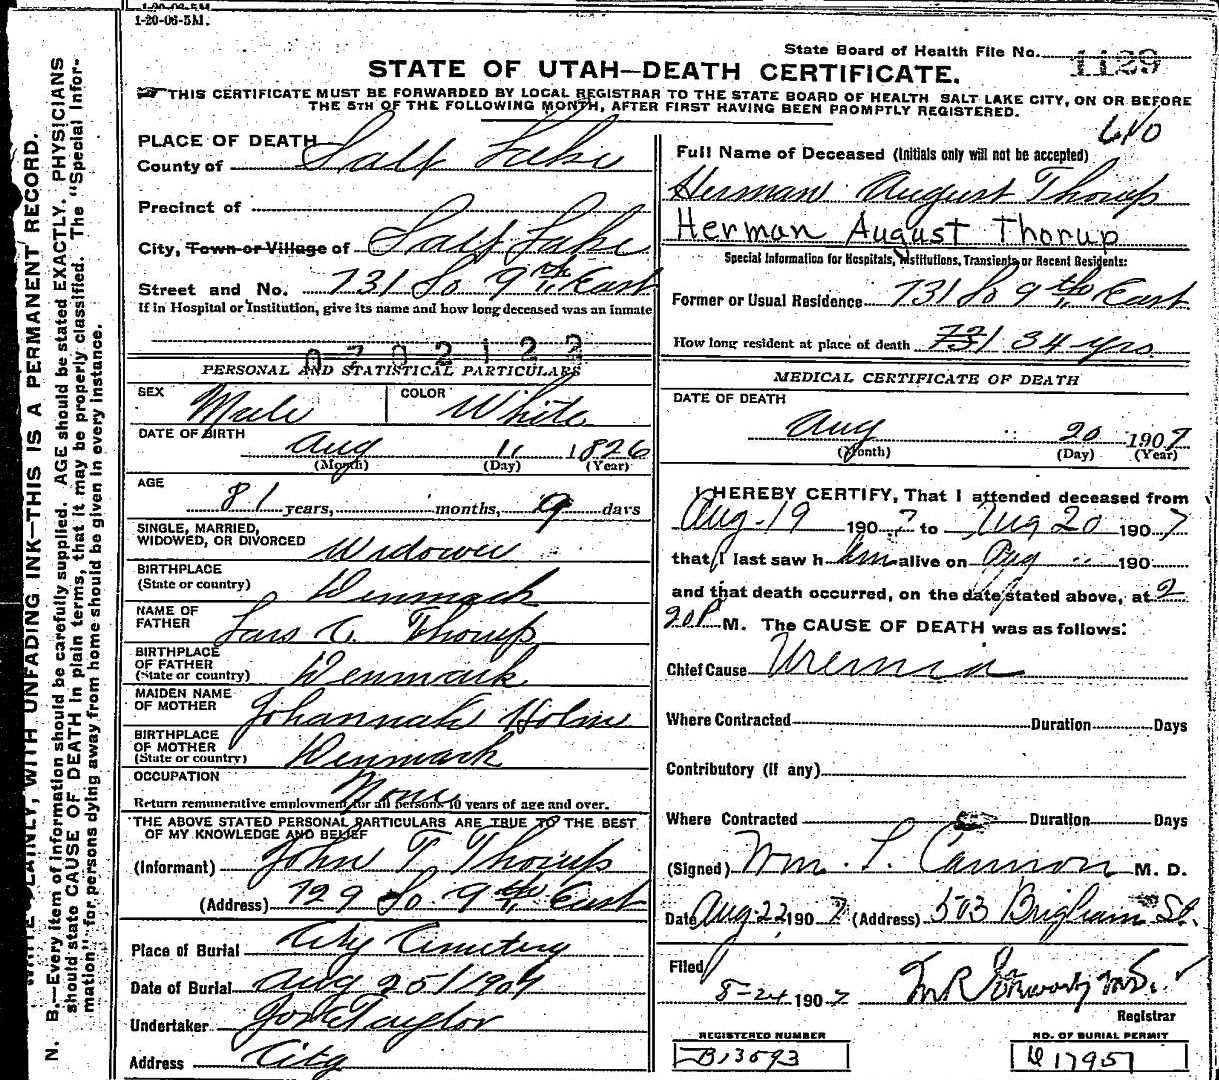 1-20-06-5M.
State Board of Health File No. 1129
STATE OF UTAH—DEATH CERTIFICATE.
THIS CERTIFICATE MUST BE FORWARDED BY LOCAL REGISTRAR TO THE STATE BOARD OF HEALTH SALT LAKE CITY, ON OR BEFORE
THE 5TH OF THE FOLLOWING MONTH, AFTER FIRST HAVING BEEN PROMPTLY REGISTERED.
N. B.—Every item of information should be carefully supplied. AGE should be stated EXACTLY. PHYSICIANS
should state CAUSE OF DEATH in plain terms, that it may be properly classified. The "Special Infor-
mation" for persons dying away from home should be given in every instance.
PLAINLY, WITH UNFADING INK—THIS IS A PERMANENT RECORD.
PLACE OF DEATH
County of Salt Lake
Precinct of
City, Town or Village of Salt Lake
Street and No. 731 So 9th East
If in Hospital or Institution, give its name and how long deceased was an inmate
0702122
PERSONAL AND STATISTICAL PARTICULARS
SEX Male COLOR White
DATE OF BIRTH Aug 11 1826
(Month) (Day) (Year)
AGE 81 years, months, 9 days
SINGLE, MARRIED,
WIDOWED, OR DIVORCED Widower
BIRTHPLACE
(State or country) Denmark
NAME OF
FATHER Lars C. Thorup
BIRTHPLACE
OF FATHER
(State or country) Denmark
MAIDEN NAME
OF MOTHER Johannah Holm
BIRTHPLACE
OF MOTHER
(State or country) Denmark
OCCUPATION None
Return remunerative employment for all persons 10 years of age and over.
THE ABOVE STATED PERSONAL PARTICULARS ARE TRUE TO THE BEST
OF MY KNOWLEDGE AND BELIEF
(Informant) John T Thorup
(Address) 729 So 9th East
Place of Burial City Cemetery
Date of Burial Aug 25/1907
Undertaker Jos Taylor
Address City
610
Full Name of Deceased (Initials only will not be accepted)
Herman August Thorup
Herman August Thorup
Special Information for Hospitals, Institutions, Transients or Recent Residents:
Former or Usual Residence 731 So 9th East
How long resident at place of death 34 yrs.
MEDICAL CERTIFICATE OF DEATH
DATE OF DEATH
Aug 20 1907
(Month) (Day) (Year)
I HEREBY CERTIFY, That I attended deceased from
Aug-19 1907 to Aug 20 1907
that I last saw him alive on Aug " 190
and that death occurred, on the date stated above, at 2
20P. M. The CAUSE OF DEATH was as follows:
Chief Cause Uremia
Where Contracted Duration Days
Contributory (If any)
Where Contracted Duration Days
(Signed) Wm. T. Cannon M. D.
Date Aug 22, 1907 (Address) 503 Brigham St.
Filed 8-24 1907
Registrar
REGISTERED NUMBER
B13593
NO. OF BURIAL PERMIT
17957